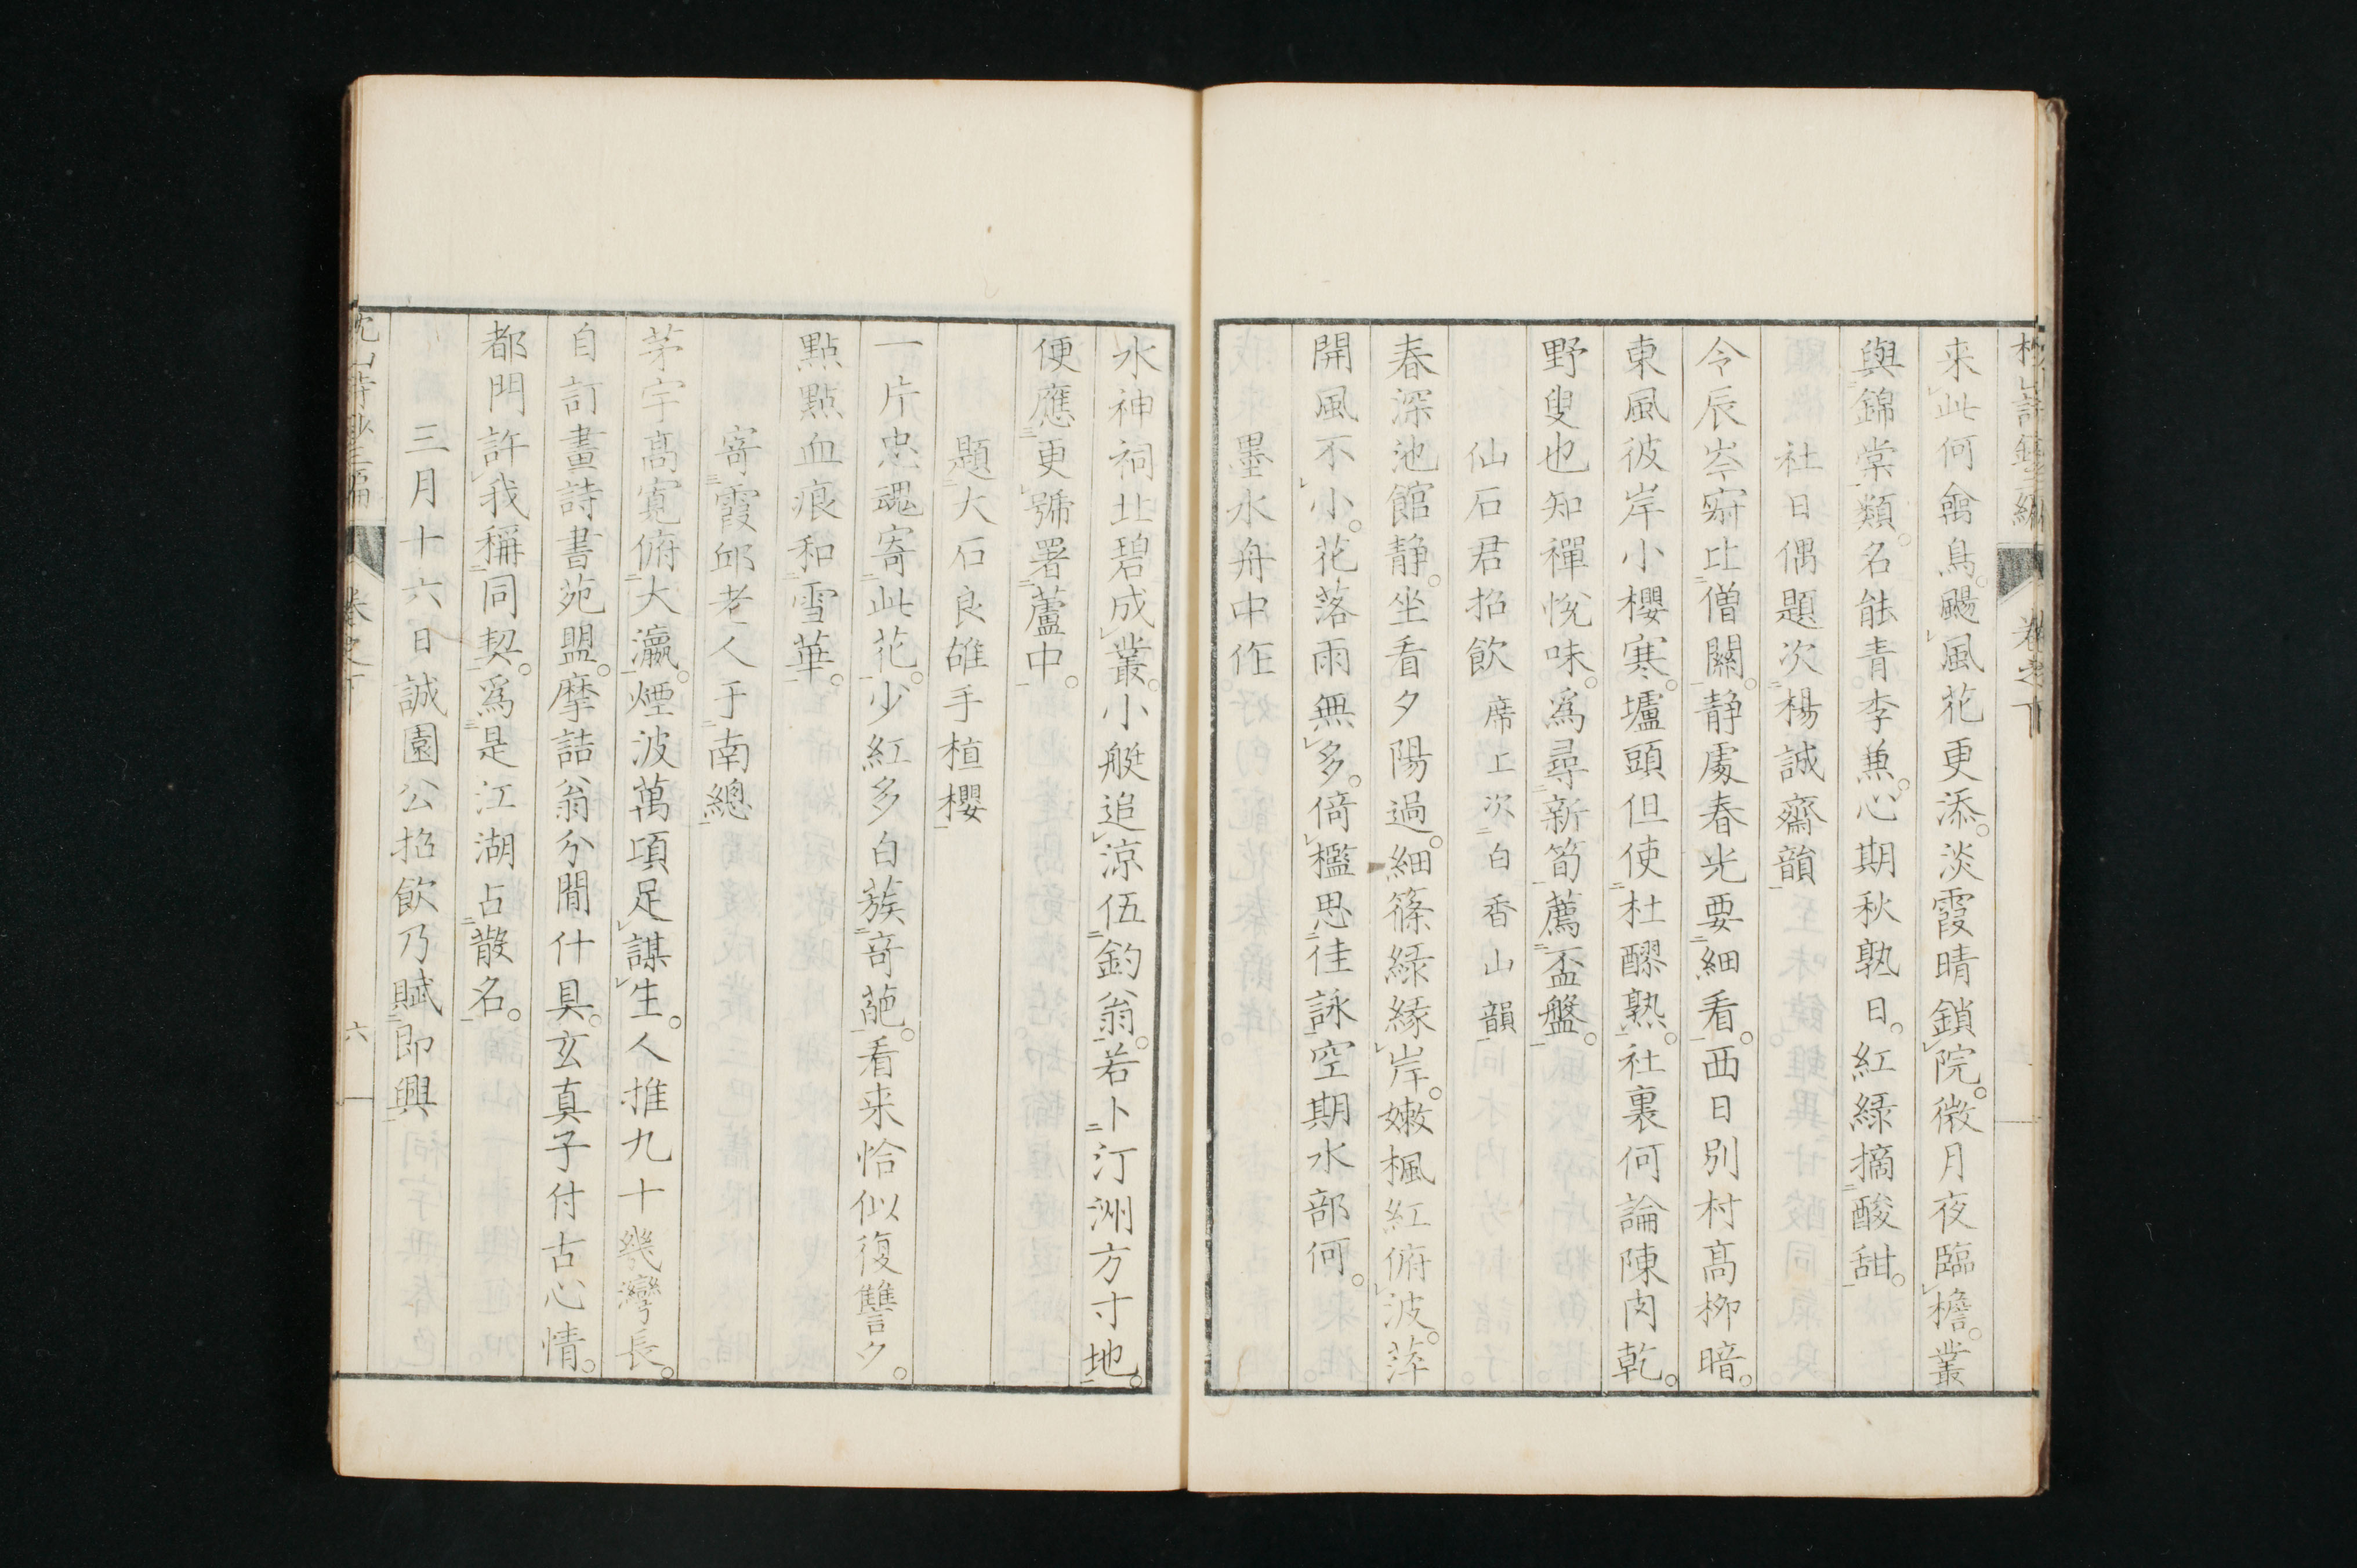 来此何禽鳥颺風花更添淡霞晴鎖院微月夜臨檐叢
與錦棠類名能青李兼心期秋孰日紅緑摘酸甜
社日偶題次楊誠齋韻
令辰岑寂比僧關静處春光要細看西日別村髙栁暗
東風彼岸小櫻寒壚頭但使杜醪熟社裏何論陳肉乾
野叟也知禪悅味爲尋新筍薦盃盤
仙石君招飲席上次白香山韻
春深池館静坐看夕陽過細篠緑縁岸嫩楓紅俯波萍
開風不小花落雨無多倚檻思佳詠空期水部何
墨水舟中作
水神祠北碧成叢小艇追涼伍釣翁若卜汀洲方寸地
便應更號署蘆中
題大石良雄手植櫻
一片忠魂寄此花少紅多白蔟竒葩看来恰似復讐夕
點點血痕和雪華
寄霞邱老人于南總
茅宇髙寛俯大瀛煙波萬項足謀生人推九十幾灣長
自訂畫詩書苑盟摩詰翁分閒什具玄真子付古心情
都門許我稱同契爲是江湖占散名
三月十六日誠園公招飲乃賦即興
卷之下
六